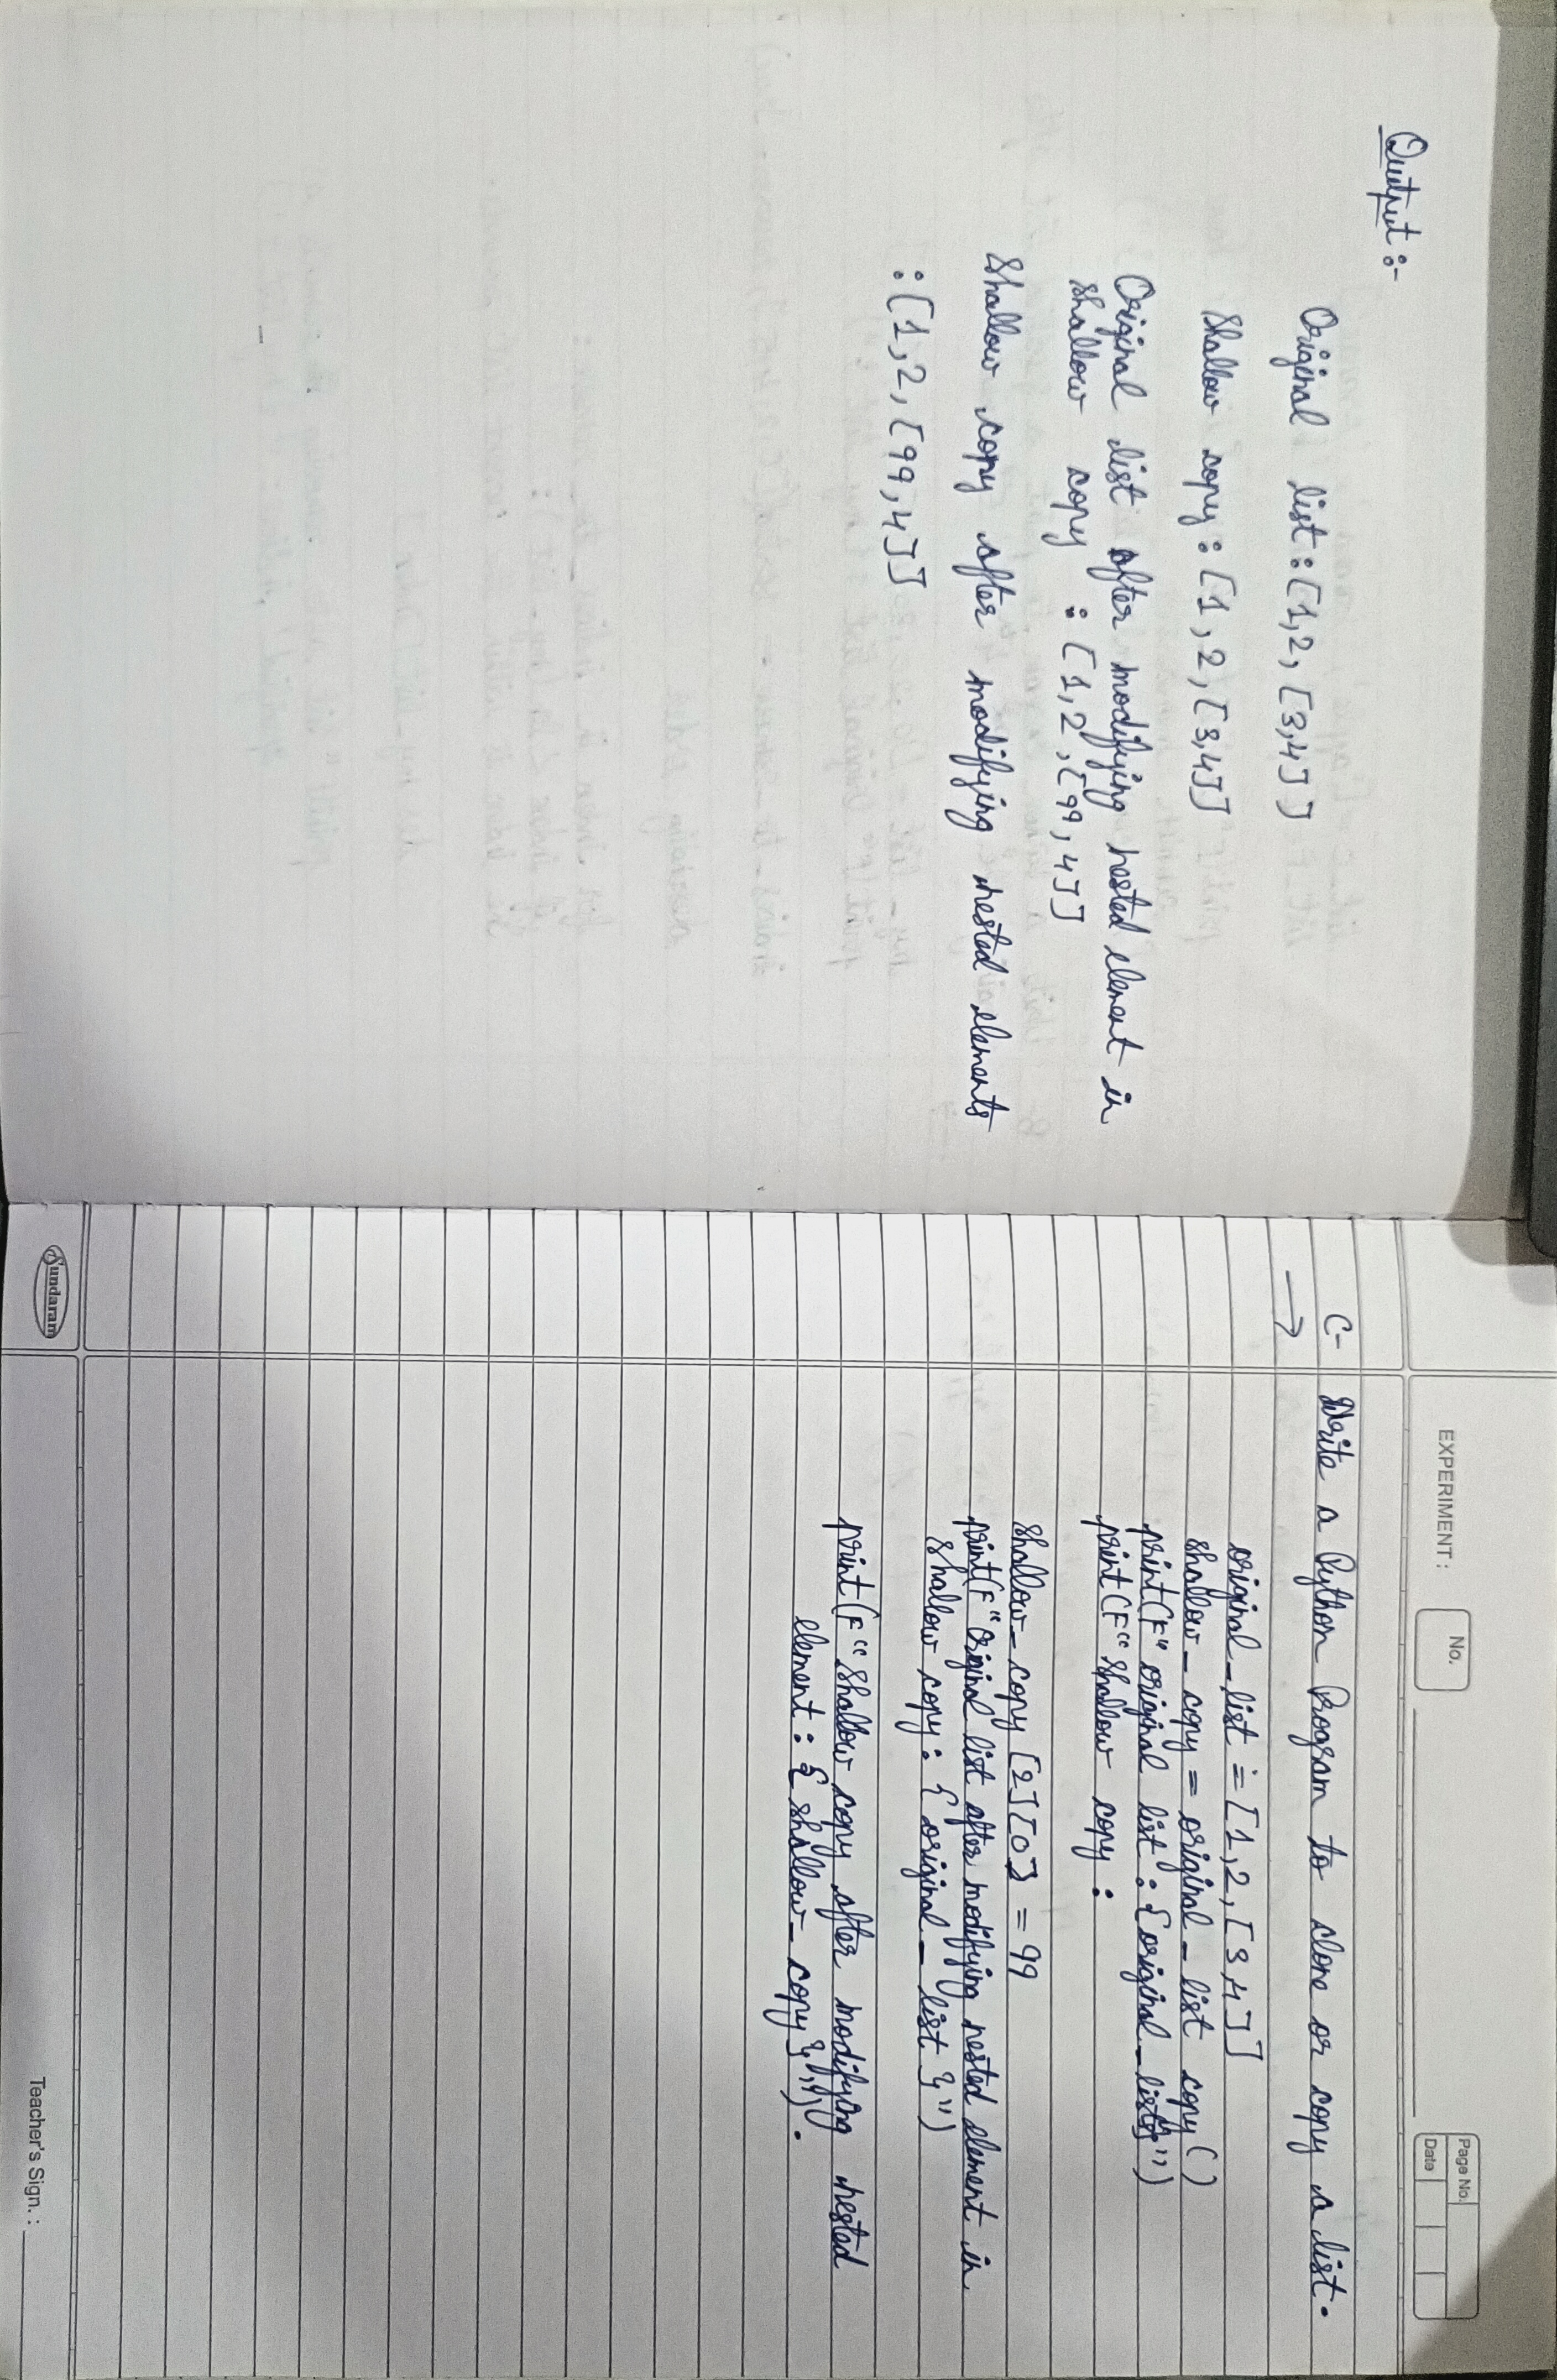 Output :-
Original list : [1,2, [3,4]]
Shallow copy : [1, 2, [3,4]]
Original list after modifying nested element in
shallow copy : [1,2, [99, 4]]
Shallow copy after modifying nested elements
: [1,2, [99,4]]
EXPERIMENT :
No.
Page No.
Date
C- Write a Python Program to clone or copy a list.
→
original_list = [1,2, [3,4]]
shallow_copy = original_list copy()
print(F" original list : {original_list}")
print(F"Shallow copy :
shallow_copy [2][0] = 99
print(F"Original list after modifying nested element in
shallow copy : { original_list }")
print(F"Shallow copy after modifying nested
element : { shallow_copy }") .
Sundaram
Teacher's Sign. :